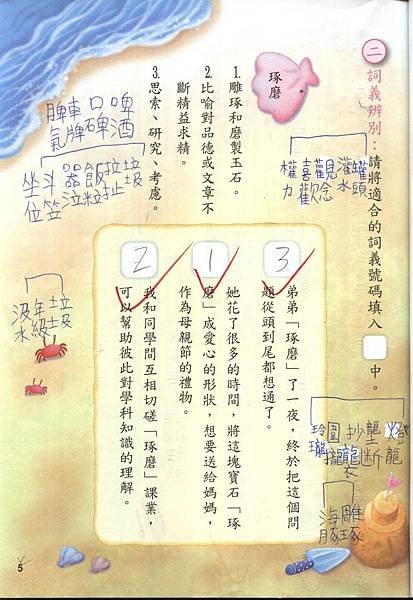 二 詞義辨別：請將適合的詞義號碼填入□中。
琢磨
1.雕琢和磨製玉石。
2.比喻對品德或文章不
斷精益求精。
3.思索、研究、考慮。
罐頭
灌水
觀念
喜歡
權力
啤酒
口碑
車牌
脾氣
垃圾
拉扯
飯粒
斗笠
坐位
3
弟弟「琢磨」了一夜，終於把這個問
題從頭到尾都想通了。
1
她花了很多的時間，將這塊寶石「琢
磨」成愛心的形狀，想要送給媽媽，
作為母親節的禮物。
2
我和同學間互相切磋「琢磨」課業，
可以幫助彼此對學科知識的理解。
垃圾
年級
汲水
燈籠
壟斷
抄襲
圍攏
玲瓏
雕琢
海豚
5